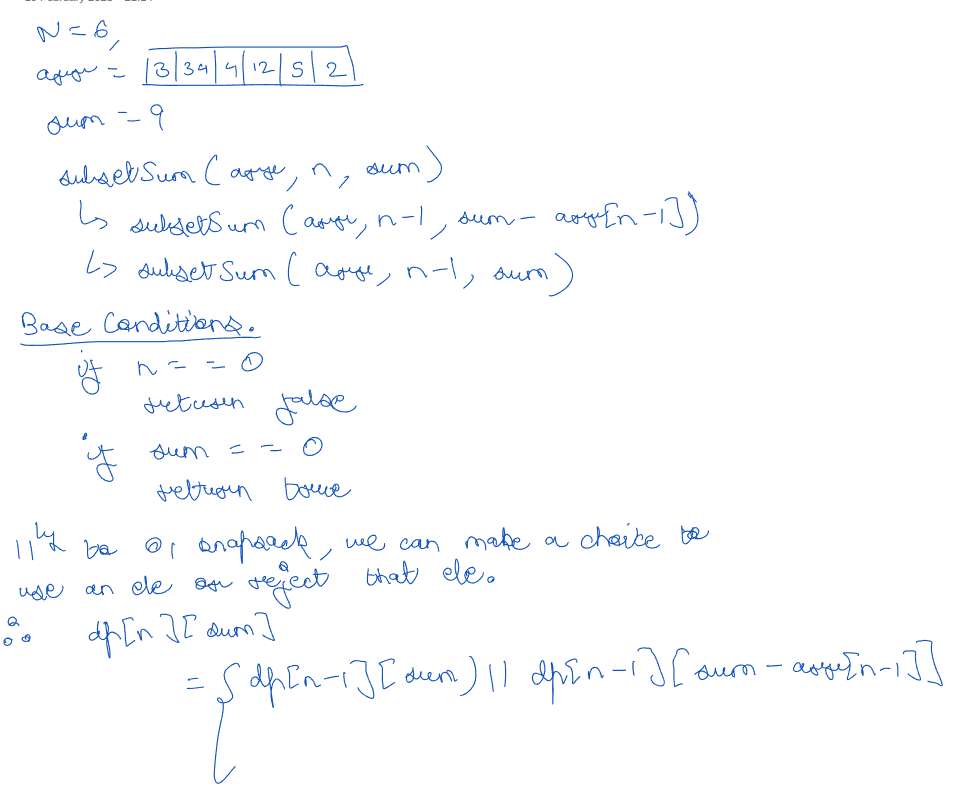 N = 6,
arr = |3|34|4|12|5|2|
sum = 9
subsetSum (arr, n, sum)
↳ subsetSum (arr, n-1, sum - arr[n-1])
↳ subsetSum (arr, n-1, sum)
Base Conditions.
if n == 0
return false
if sum == 0
return true
||ly to 01 knapsack, we can make a choice to
use an ele or reject that ele.
∴ dp[n][sum]
= { dp[n-1][sum) || dp[n-1][sum - arr[n-1]]